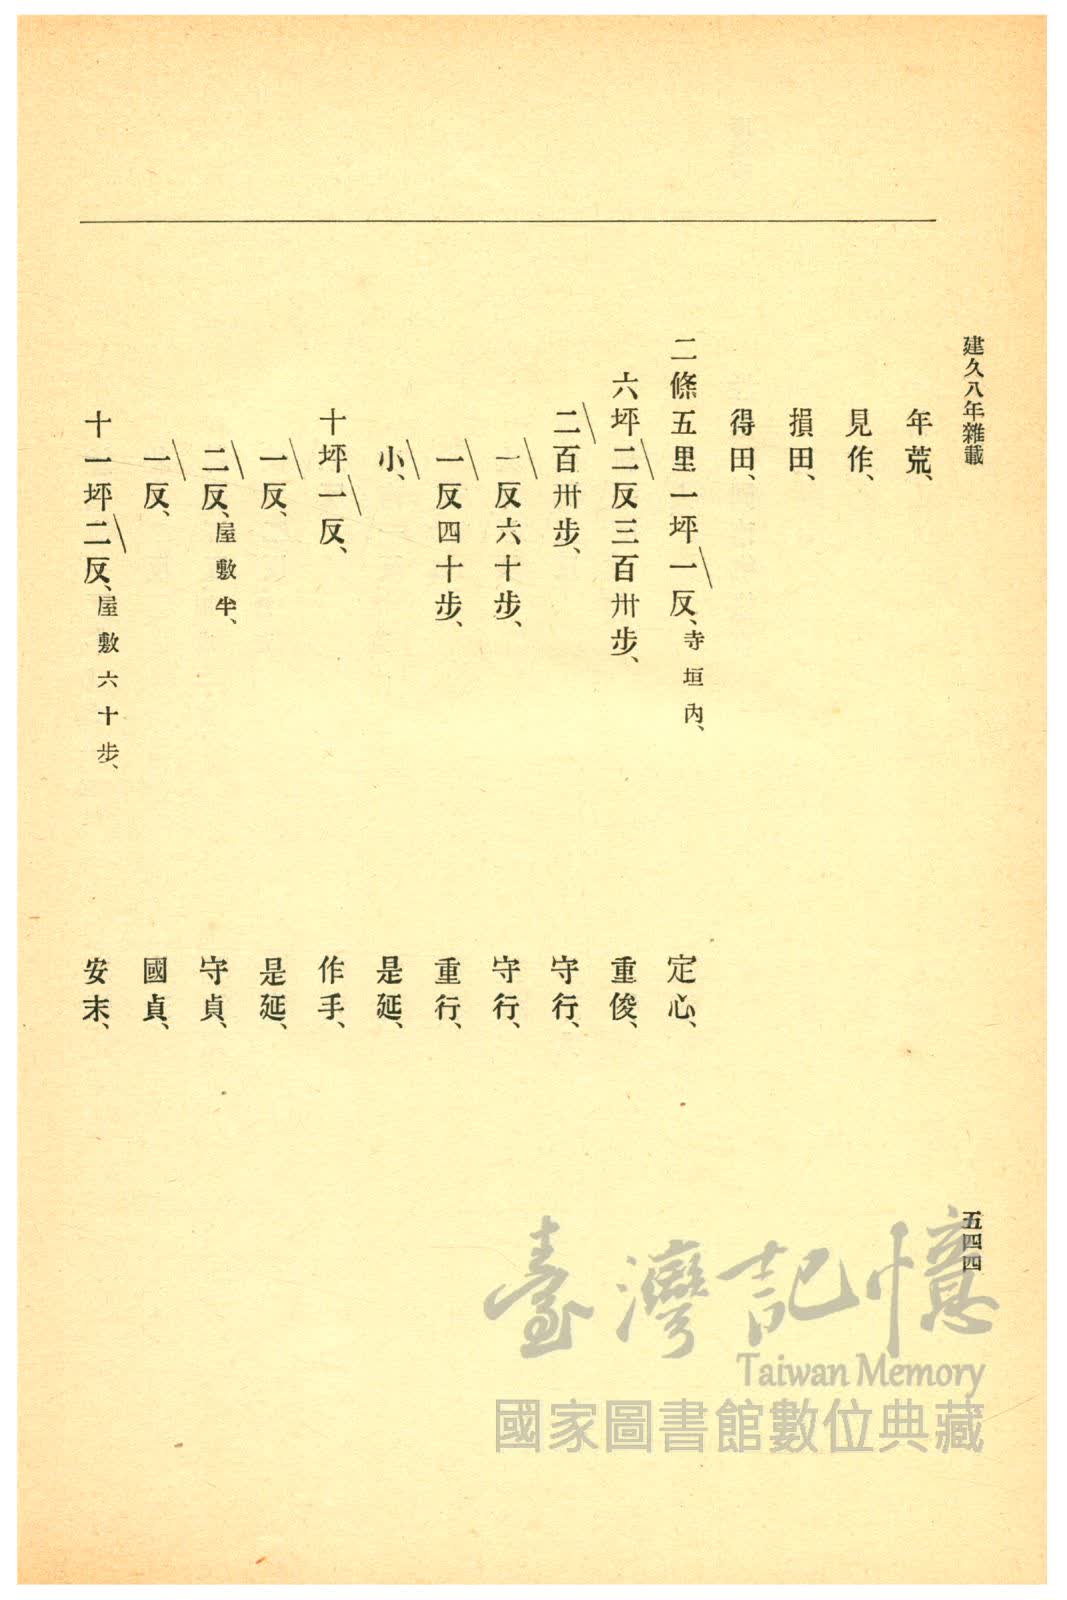 建久八年雜載
五四四
年荒、
見作、
損田、
得田、
二條五里一坪一反、寺垣內、 定心、
六坪二反三百卅步、 重俊、
二百卅步、 守行、
一反六十步、 守行、
一反四十步、 重行、
小、 是延、
十坪一反、 作手、
一反、 是延、
二反、屋敷半、 守貞、
一反、 國貞、
十一坪二反、屋敷六十步、 安末、
臺灣記憶
Taiwan Memory
國家圖書館數位典藏